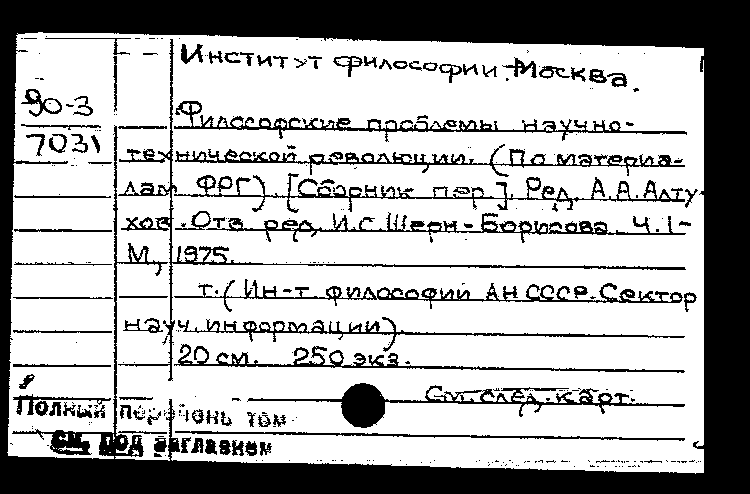 Институт философии. Москва.
90-3
7031
Философские проблемы научно-
технической революции. (По материа-
лам ФРГ). [Сборник пер.]. Ред. А.А.Алту-
хов. Отв. ред. И.С.Шерн-Борисова. Ч.1-
М., 1975.
т. (Ин-т философии АН СССР. Сектор
науч. информации).
20 см. 250 экз.
См. след. карт.
Полный перечень том
см. под заглавием